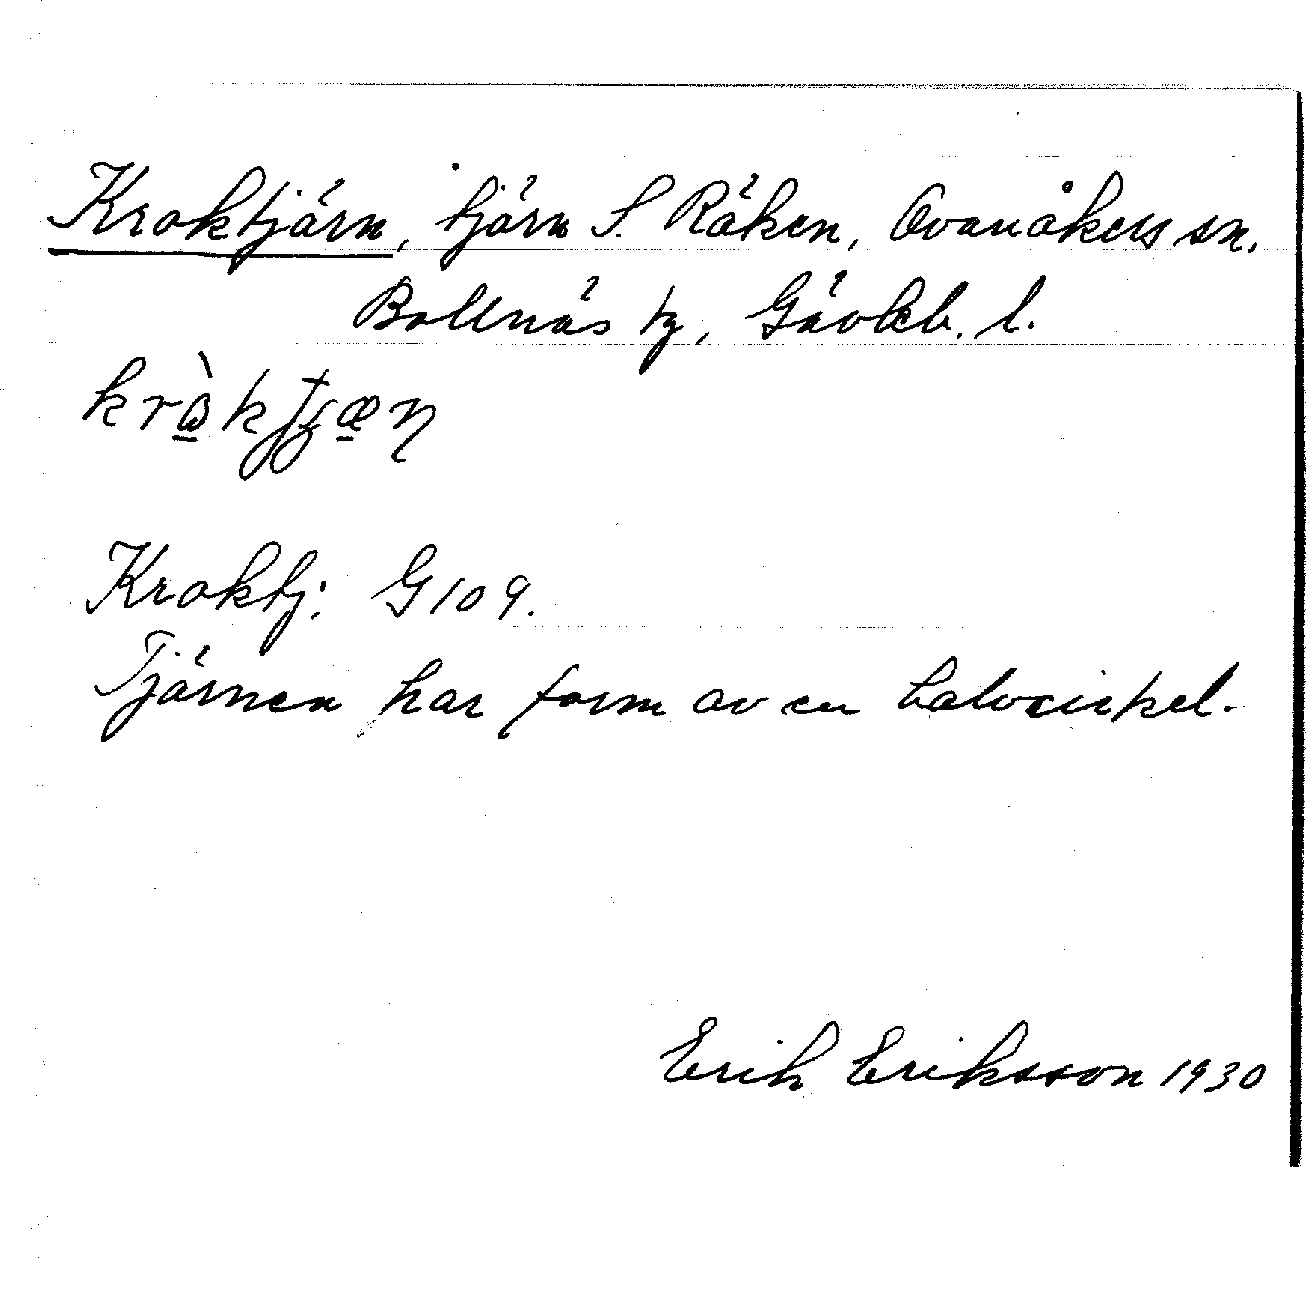 Kroktjärn, tjärn S. Räken, Ovanåkers sn.
Bollnäs tg, Gävleb. l.
Kroktj. G 109.
Tjärnen har form av en halvcirkel.
Erik Eriksson 1930